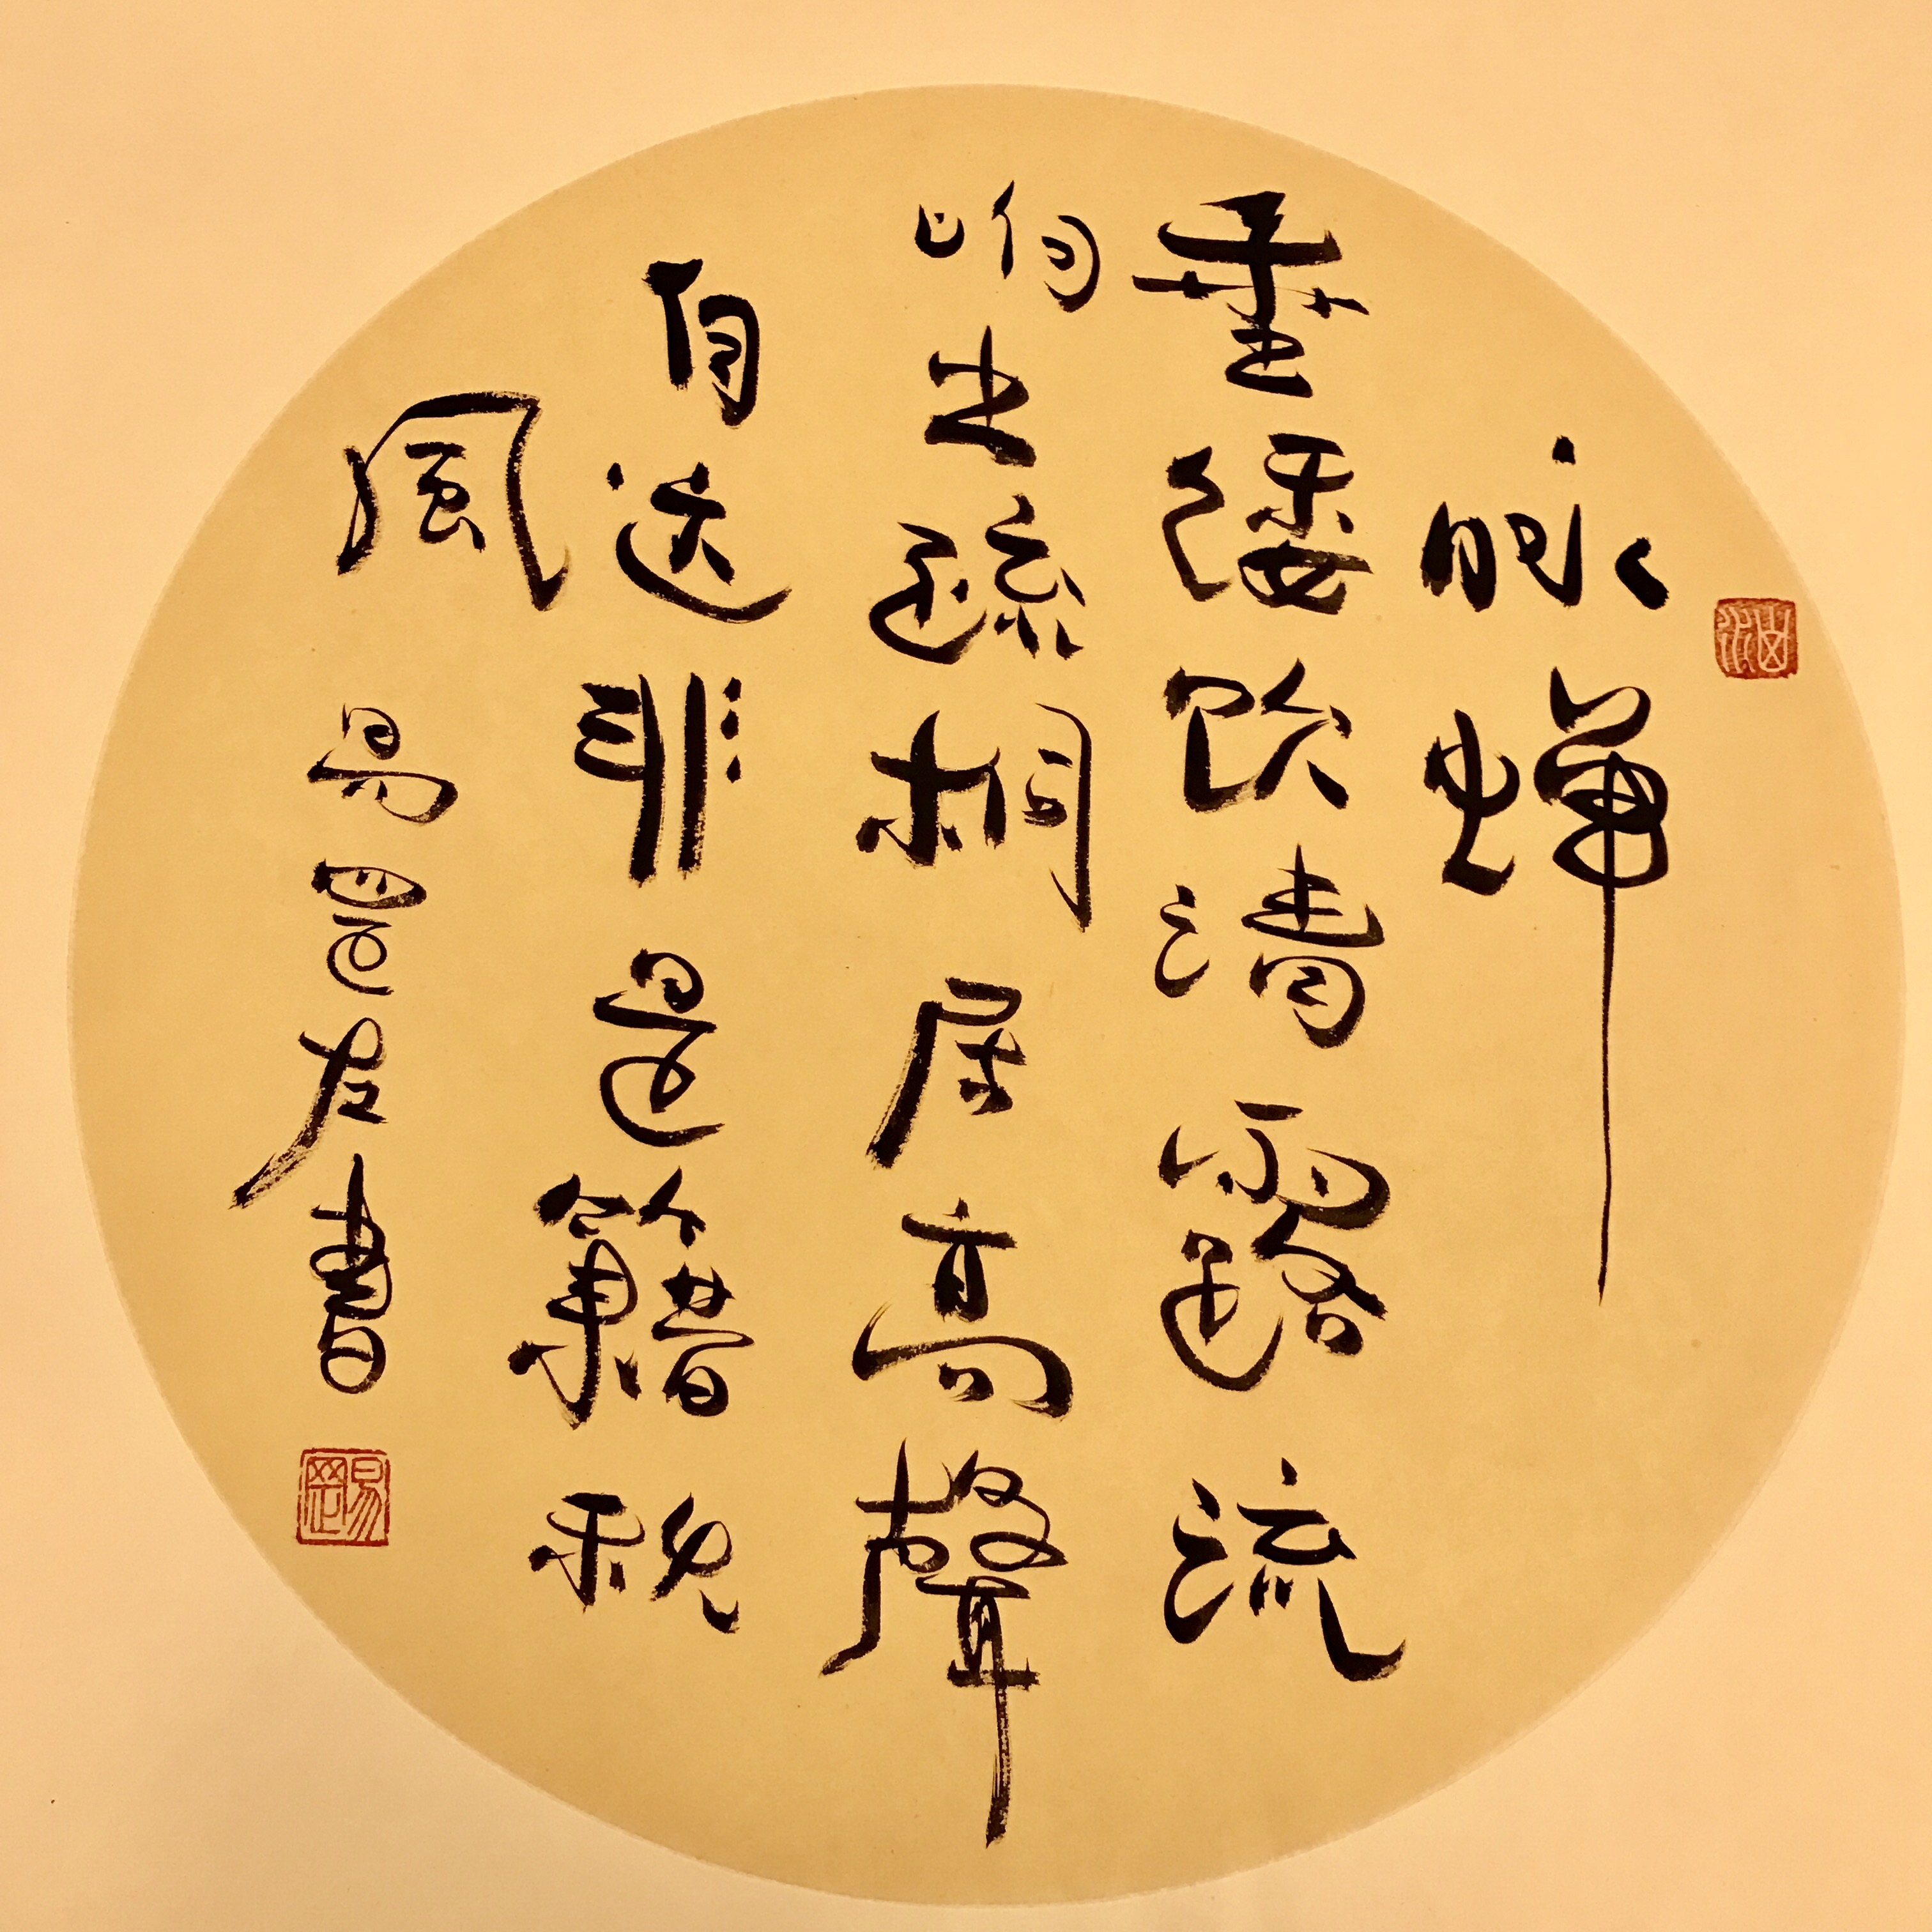 咏蟬
垂緌飲清露流
响出疏桐居高聲
自遠非是籍秋
風 易罡書
易罡